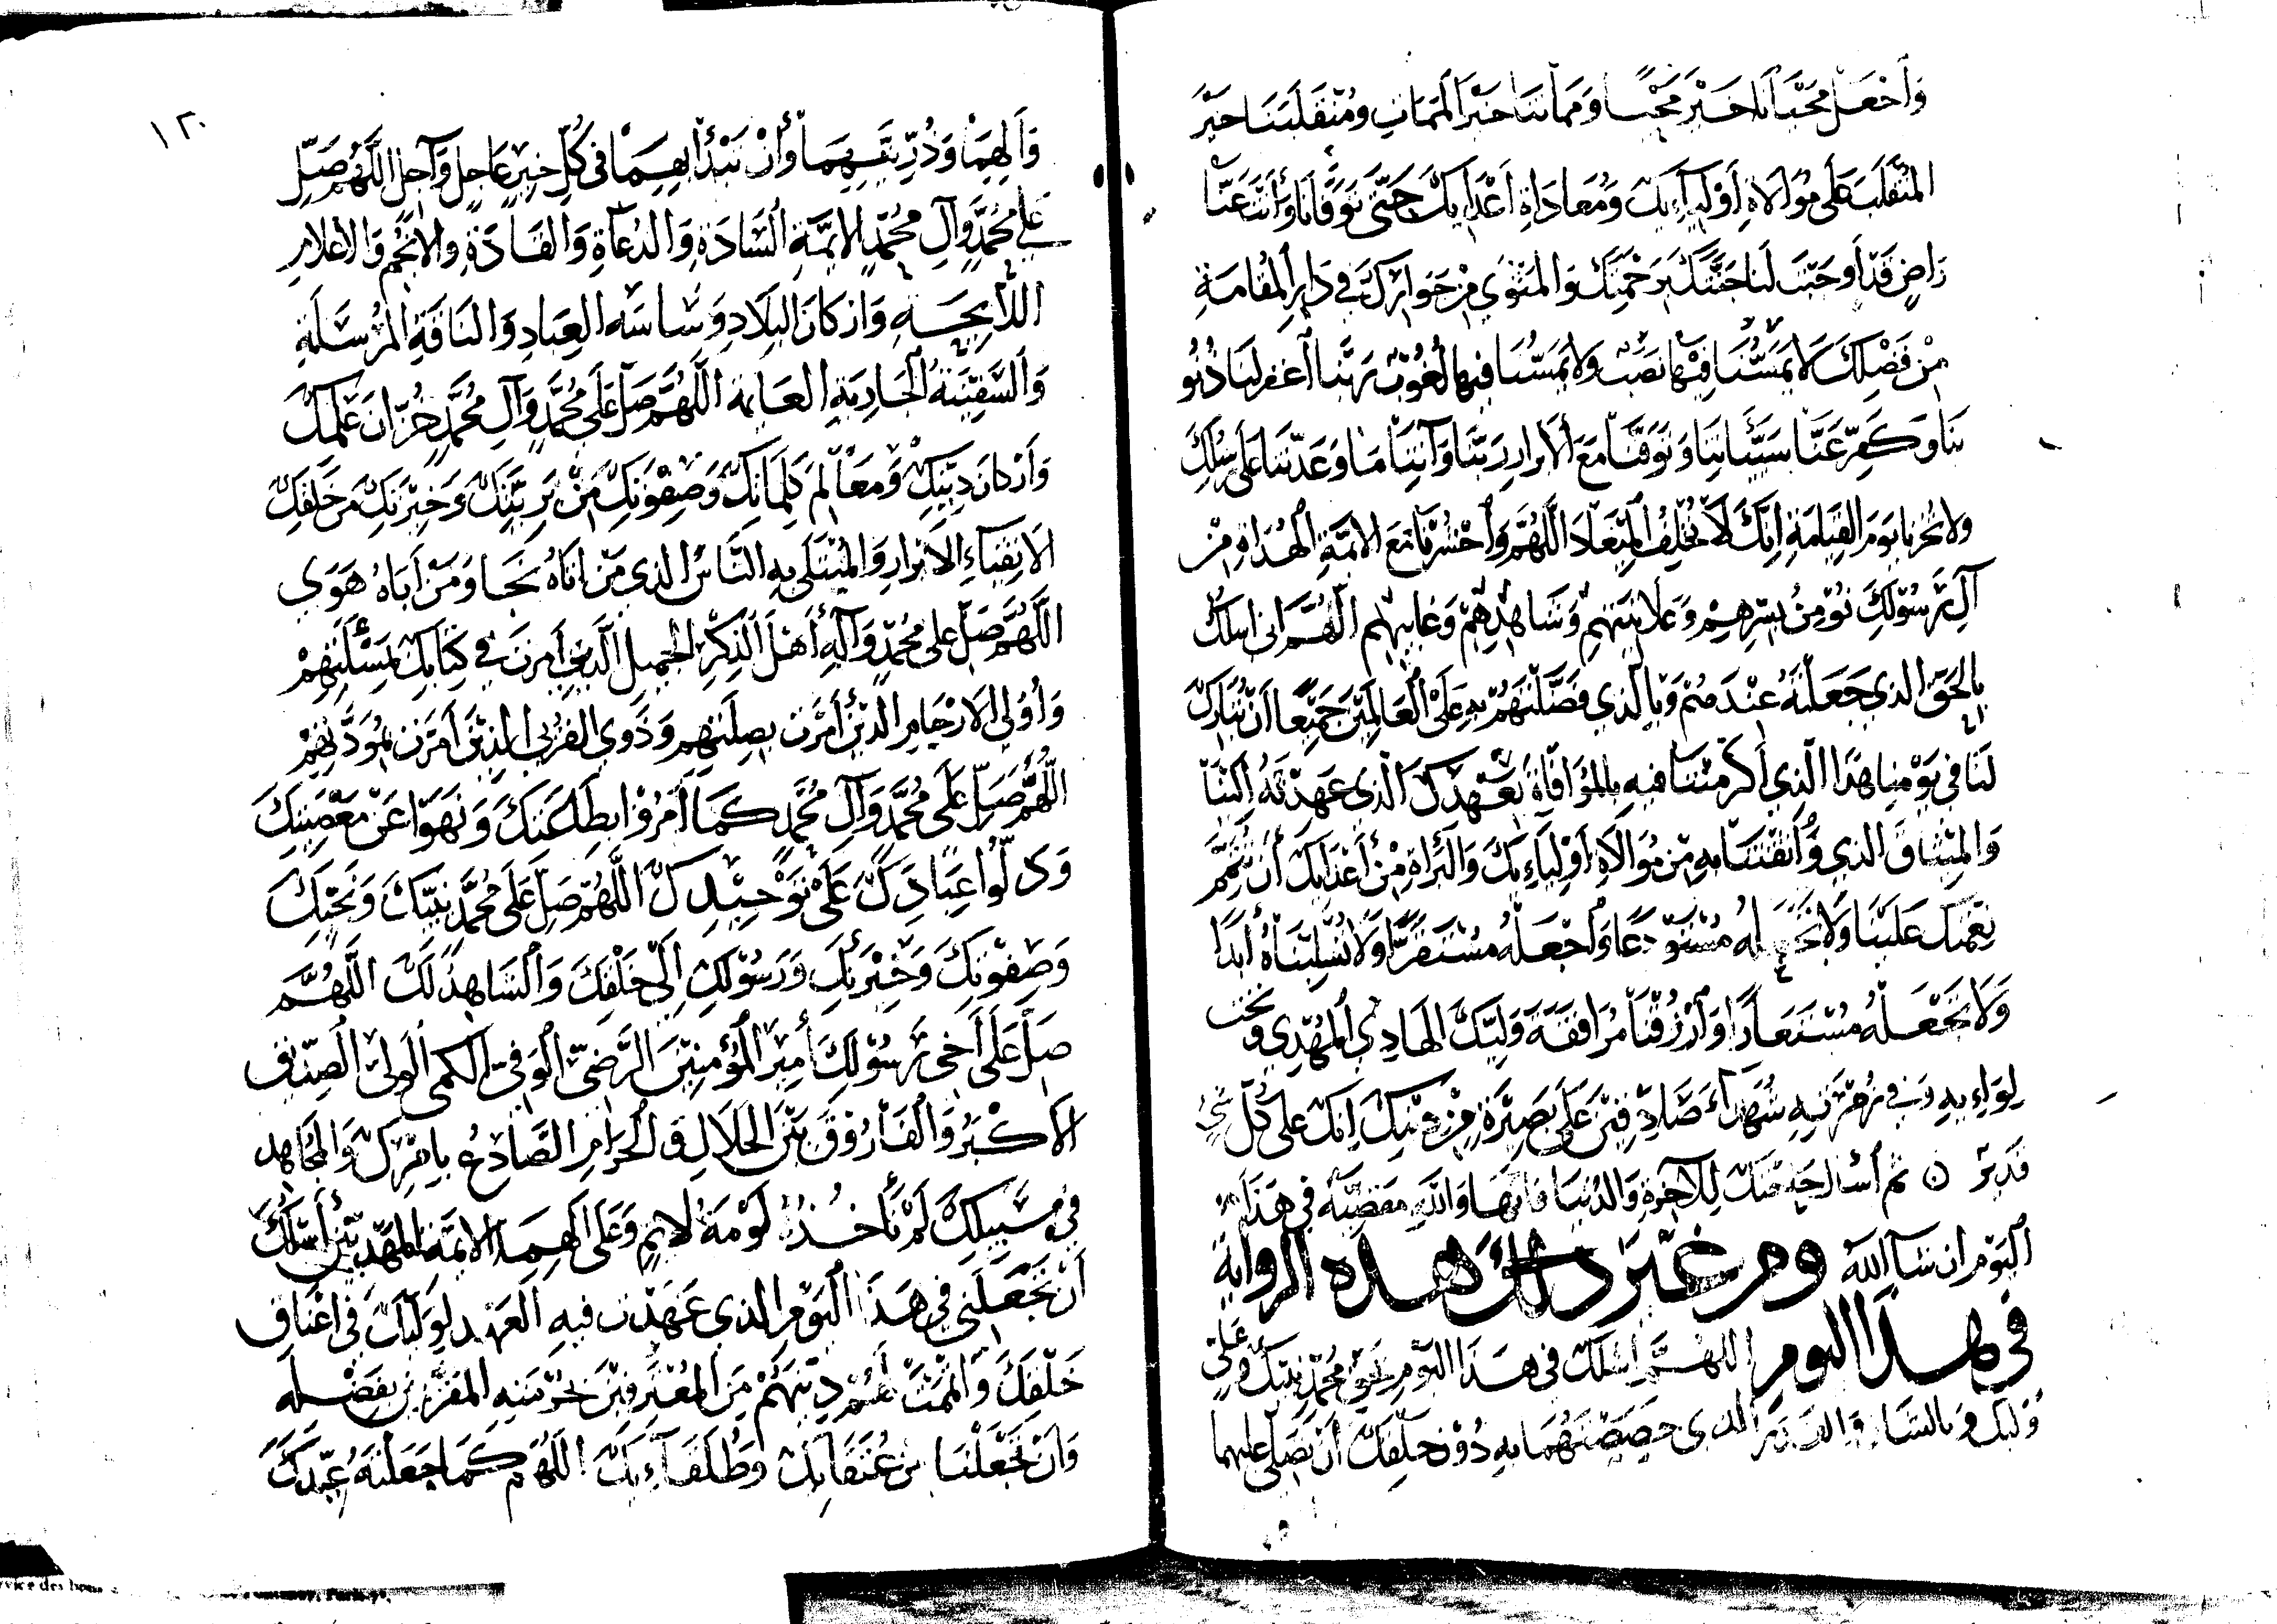 وَاجْعَلْ مَحْيَانَا خَيْرَ مَحْيًا وَمَمَاتَنَا خَيْرَ الْمَمَاتِ وَمُنْقَلَبَنَا خَيْرَ
الْمُنْقَلَبِ عَلَى مُوَالَاةِ أَوْلِيَآئِكَ وَمُعَادَاةِ أَعْدَآئِكَ حَتَّى تَوَفَّانَا وَأَنْتَ عَنَّا
رَاضٍ قَدْ أَوْجَبْتَ لَنَا جَنَّتَكَ بِرَحْمَتِكَ وَالْمَثْوَى مِنْ جِوَارِكَ فِي دَارِ الْمُقَامَةِ
مِنْ فَضْلِكَ لَا يَمَسُّنَا فِيهَا نَصَبٌ وَلَا يَمَسُّنَا فِيهَا لُغُوبٌ رَبَّنَا اغْفِرْ لَنَا ذُنُو
بَنَا وَكَفِّرْ عَنَّا سَيِّئَاتِنَا وَتَوَفَّنَا مَعَ الْأَبْرَارِ رَبَّنَا وَآتِنَا مَا وَعَدْتَنَا عَلَى رُسُلِكَ
وَلَا تُخْزِنَا يَوْمَ الْقِيَامَةِ إِنَّكَ لَا تُخْلِفُ الْمِيعَادَ اللَّهُمَّ وَاحْشُرْنَا مَعَ الْأَئِمَّةِ الْهُدَاةِ مِنْ
آلِ رَسُولِكَ نُؤْمِنُ بِسِرِّهِمْ وَعَلَانِيَتِهِمْ وَشَاهِدِهِمْ وَغَائِبِهِمْ اللَّهُمَّ إِنِّي أَسْأَلُكَ
بِالْحَقِّ الَّذِي جَعَلْتَهُ عِنْدَهُمْ وَبِالَّذِي فَضَّلْتَهُمْ بِهِ عَلَى الْعَالَمِينَ جَمِيعًا أَنْ تُبَارِكَ
لَنَا فِي يَوْمِنَا هَذَا الَّذِي أَكْرَمْتَنَا فِيهِ بِالْمُوَافَاةِ بِعَهْدِكَ الَّذِي عَهِدْتَهُ إِلَيْنَا
وَالْمِيثَاقِ الَّذِي وَاثَقْتَنَا بِهِ مِنْ مُوَالَاةِ أَوْلِيَآئِكَ وَالْبَرَاءَةِ مِنْ أَعْدَائِكَ أَنْ تُتِمَّ
نِعْمَتَكَ عَلَيْنَا وَلَا تَجْعَلَهُ مُسْتَوْدَعًا وَاجْعَلْهُ مُسْتَقَرًّا وَلَا تَسْلُبْنَاهُ أَبَدًا
وَلَا تَجْعَلْهُ مُسْتَعَارًا وَارْزُقْنَا مُرَافَقَةَ وَلِيِّكَ الْهَادِي الْمَهْدِيِّ وَتَحْتَ
لِوَائِهِ وَفِي زُمْرَتِهِ شُهَدَآءَ صَادِقِينَ عَلَى بَصِيرَةٍ مِنْ دِينِكَ إِنَّكَ عَلَى كُلِّ شَيْءٍ
قَدِيرٌ ثُمَّ اسْأَلْ حَاجَتَكَ لِلْآخِرَةِ وَالدُّنْيَا فَإِنَّهَا وَاللَّهِ مَقْضِيَّةٌ فِي هَذَا
الْيَوْمِ إِنْ شَآءَ اللَّهُ ومن غير ذلك هذه الرواية
في هذا اليوم اللَّهُمَّ إِنِّي أَسْأَلُكَ فِي هَذَا الْيَوْمِ بِحَقِّ مُحَمَّدٍ نَبِيِّكَ وَعَلِيٍّ
وَلِيِّكَ وَبِالشَّأْنِ وَالْقَدْرِ الَّذِي خَصَصْتَهُمَا بِهِ دُونَ خَلْقِكَ أَنْ تُصَلِّيَ عَلَيْهِمَا
١٢٠
وَآلِهِمَا وَذُرِّيَّتِهِمَا وَأَنْ تَبْدَأَ بِهِمَا فِي كُلِّ خَيْرٍ عَاجِلٍ وَآجِلٍ اللَّهُمَّ صَلِّ
عَلَى مُحَمَّدٍ وَآلِ مُحَمَّدٍ الْأَئِمَّةِ السَّادَةِ وَالدُّعَاةِ وَالْقَادَةِ وَالْأَنْجُمِ وَالْأَعْلَامِ
اللَّائِحَةِ وَأَرْكَانِ الْبِلَادِ وَسَاسَةِ الْعِبَادِ وَالنَّاقَةِ الْمُرْسَلَةِ
وَالسَّفِينَةِ الْجَارِيَةِ الْعَامَةِ اللَّهُمَّ صَلِّ عَلَى مُحَمَّدٍ وَآلِ مُحَمَّدٍ خُزَّانِ عِلْمِكَ
وَأَرْكَانِ دِينِكَ وَمَعَالِمِ كَلِمَاتِكَ وَصَفْوَتِكَ مِنْ بَرِيَّتِكَ وَخِيَرَتِكَ مِنْ خَلْقِكَ
الْأَتْقِيَآءِ الْأَبْرَارِ وَالْمُبْتَلَى بِهِ النَّاسُ الَّذِي مَنْ أَتَاهُ نَجَا وَمَنْ أَبَاهُ هَوَى
اللَّهُمَّ صَلِّ عَلَى مُحَمَّدٍ وَآلِهِ أَهْلِ الذِّكْرِ الْجَمِيلِ الَّذِينَ أَمَرْتَ فِي كِتَابِكَ بِمَسْأَلَتِهِمْ
وَأُولِي الْأَرْحَامِ الَّذِينَ أَمَرْتَ بِصِلَتِهِمْ وَذَوِي الْقُرْبَى الَّذِينَ أَمَرْتَ بِمَوَدَّتِهِمْ
اللَّهُمَّ صَلِّ عَلَى مُحَمَّدٍ وَآلِ مُحَمَّدٍ كَمَا أَمَرُوا بِطَاعَتِكَ وَنَهَوْا عَنْ مَعْصِيَتِكَ
وَدَلُّوا عِبَادَكَ عَلَى تَوْحِيدِكَ اللَّهُمَّ صَلِّ عَلَى مُحَمَّدٍ نَبِيِّكَ وَنَجِيِّكَ
وَصَفْوَتِكَ وَخِيَرَتِكَ وَرَسُولِكَ إِلَى خَلْقِكَ وَالشَّاهِدِ لَكَ اللَّهُمَّ
صَلِّ عَلَى أَخِي رَسُولِكَ أَمِيرِ الْمُؤْمِنِينَ الرَّضِيِّ الْوَفِيِّ الْكَمِيِّ الْوَلِيِّ الصِّدِّيقِ
الْأَكْبَرِ وَالْفَارُوقِ بَيْنَ الْحَلَالِ وَالْحَرَامِ الصَّادِعِ بِأَمْرِكَ وَالْمُجَاهِدِ
فِي سَبِيلِكَ لَمْ تَأْخُذْهُ لَوْمَةُ لَائِمٍ وَعَلَى آلِهِمَا الْأَئِمَّةِ الْمَهْدِيِّينَ أَسْأَلُكَ
أَنْ تَجْعَلَنِي فِي هَذَا الْيَوْمِ الَّذِي عَهِدْتَ فِيهِ الْعَهْدَ لِوَلِيِّكَ فِي أَعْنَاقِ
خَلْقِكَ وَأَتْمَمْتَ لَهُمْ دِينَهُمْ مِنَ الْمُعْتَرِفِينَ بِحُرْمَتِهِ الْمُقِرِّينَ بِفَضْلِهِ
وَأَنْ تَجْعَلَنَا مِنْ عُتَقَائِكَ وَطُلَقَآئِكَ اللَّهُمَّ كَمَا جَعَلْتَهُ عِيدَكَ